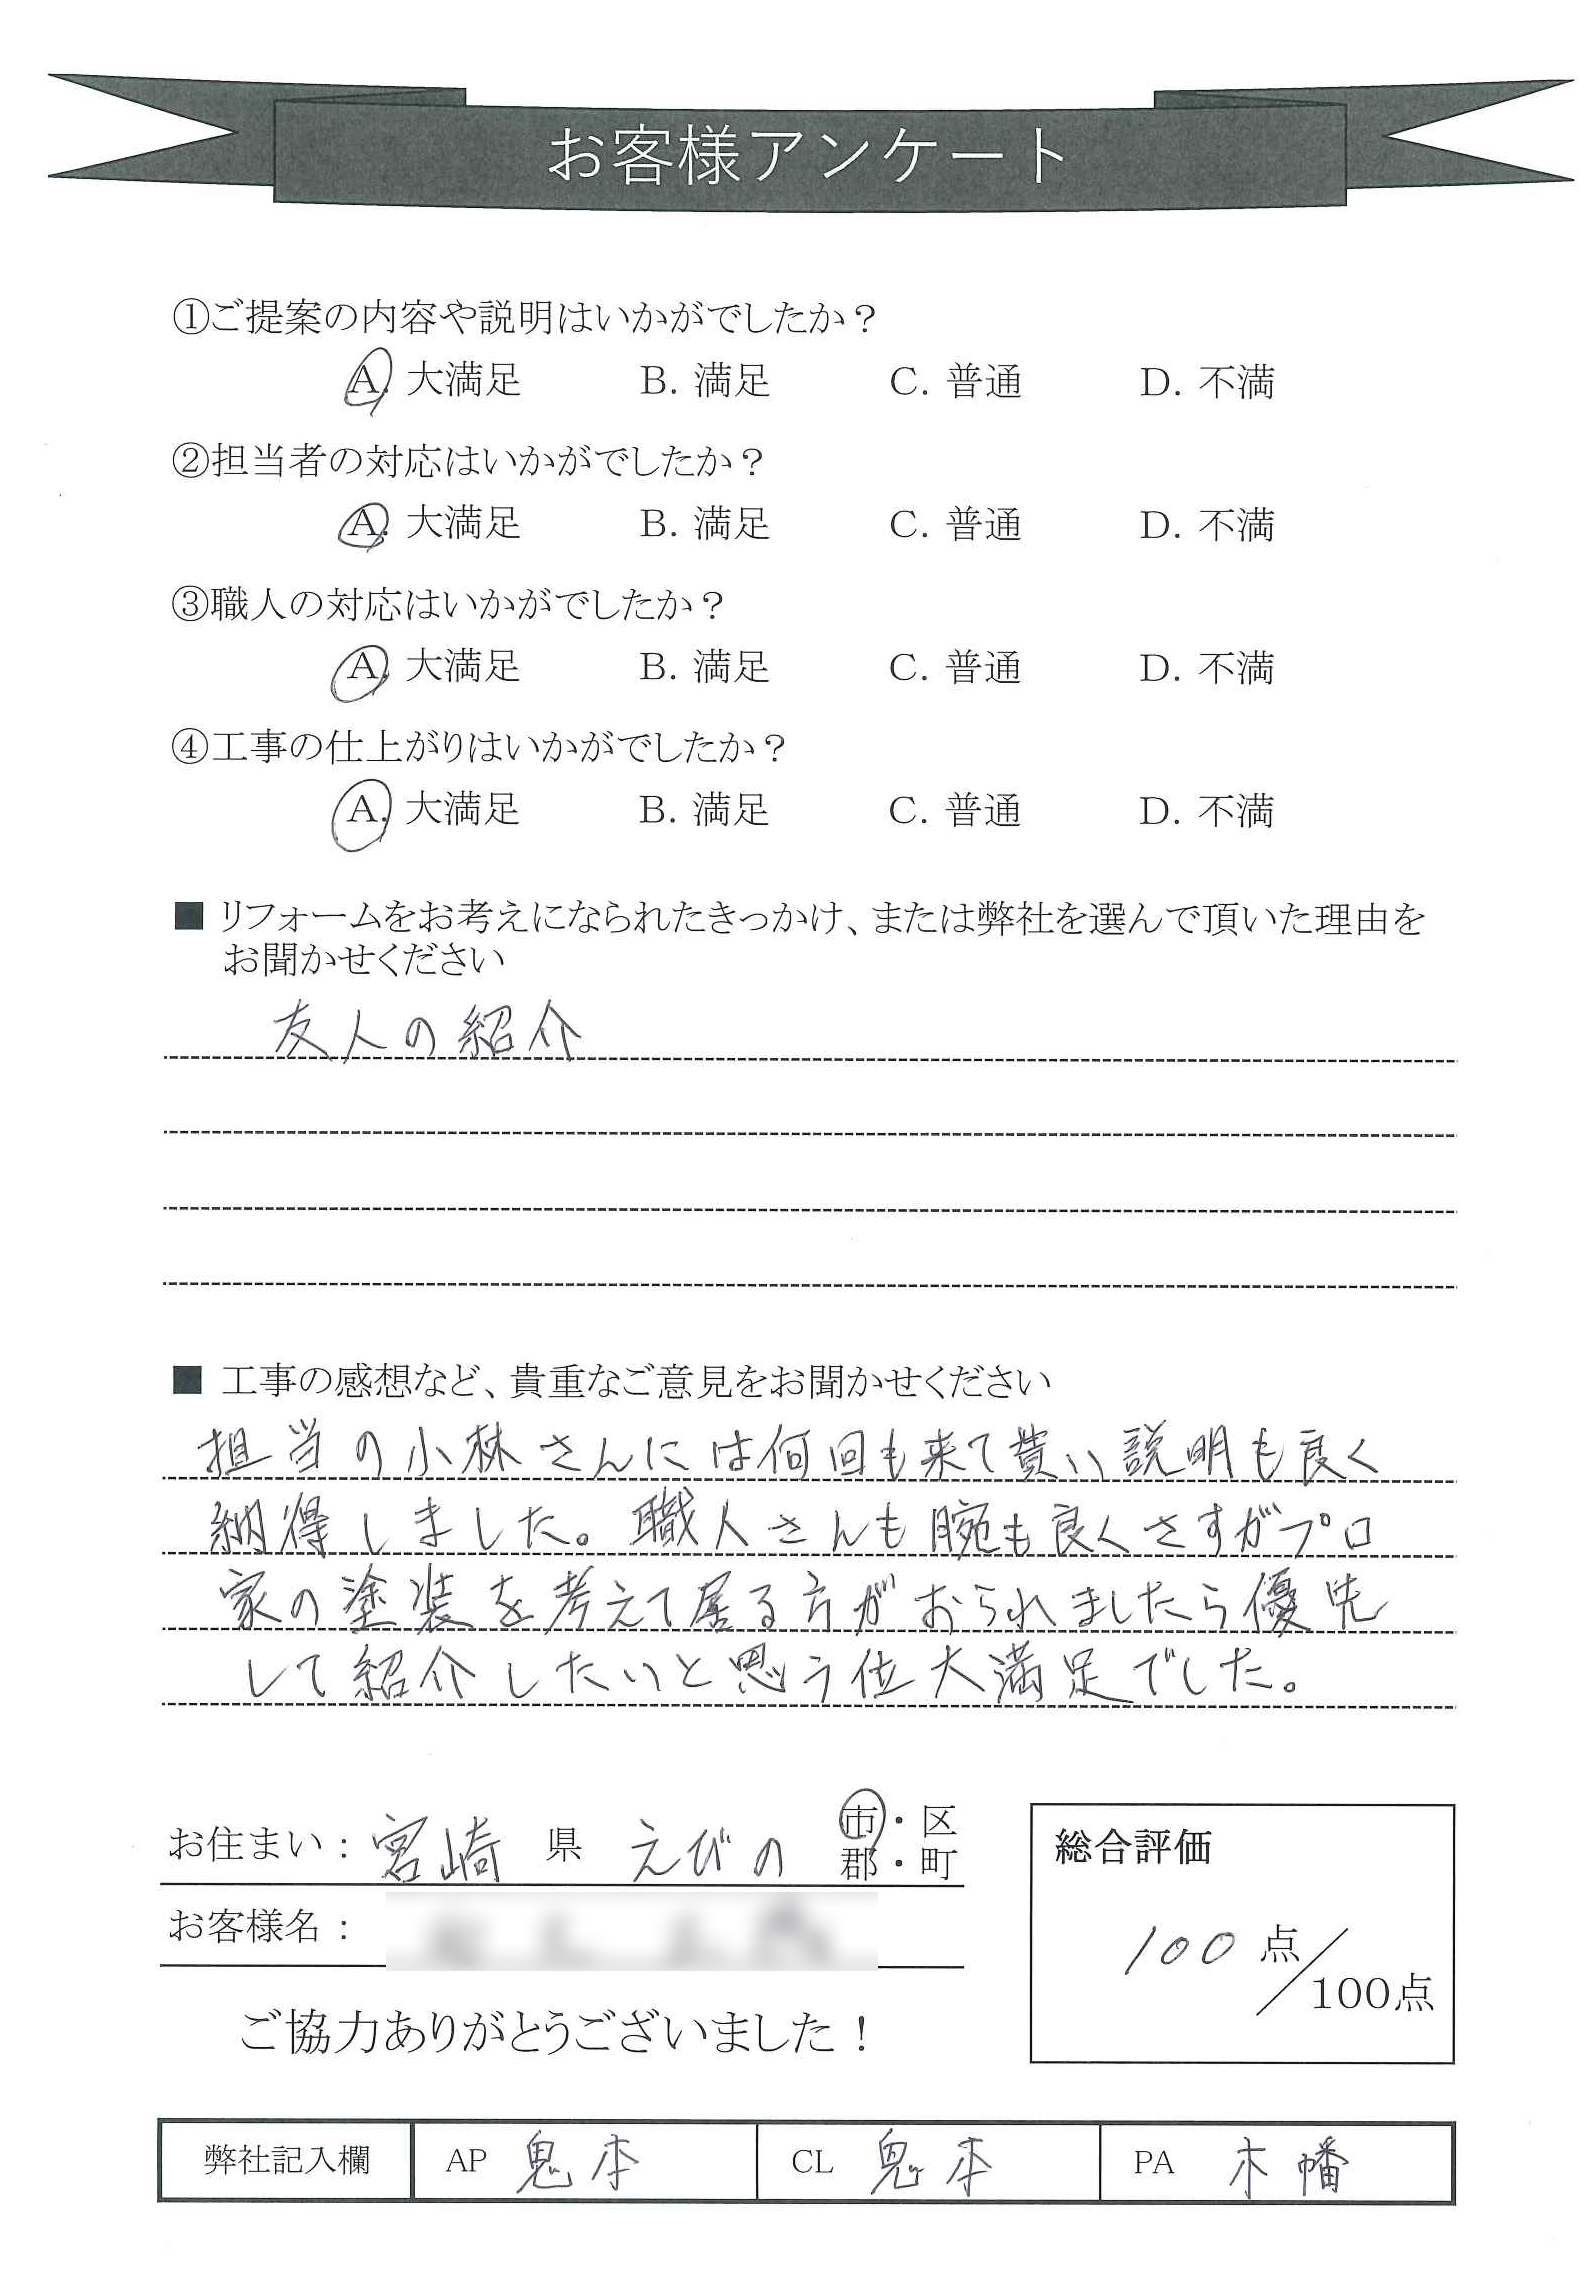 お客様アンケート
①ご提案の内容や説明はいかがでしたか？
A. 大満足 B. 満足 C. 普通 D. 不満
②担当者の対応はいかがでしたか？
A. 大満足 B. 満足 C. 普通 D. 不満
③職人の対応はいかがでしたか？
A. 大満足 B. 満足 C. 普通 D. 不満
④工事の仕上がりはいかがでしたか？
A. 大満足 B. 満足 C. 普通 D. 不満
■ リフォームをお考えになられたきっかけ、または弊社を選んで頂いた理由を
お聞かせください
友人の紹介
■ 工事の感想など、貴重なご意見をお聞かせください
担当の小林さんには何回も来て貰い説明も良く
納得しました。職人さんも腕も良くさすがプロ
家の塗装を考えて居る方がおられましたら優先
して紹介したいと思う位大満足でした。
お住まい：宮崎県 えびの 市・区
郡・町
お客様名：
総合評価
100 点／100点
ご協力ありがとうございました！
弊社記入欄 AP 鬼本 CL 鬼本 PA 木幡